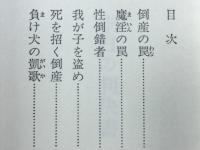 目次
倒産の罠
魔淫の罠
性倒錯者
我が子を盗め
死を招く倒産
負け犬の凱歌